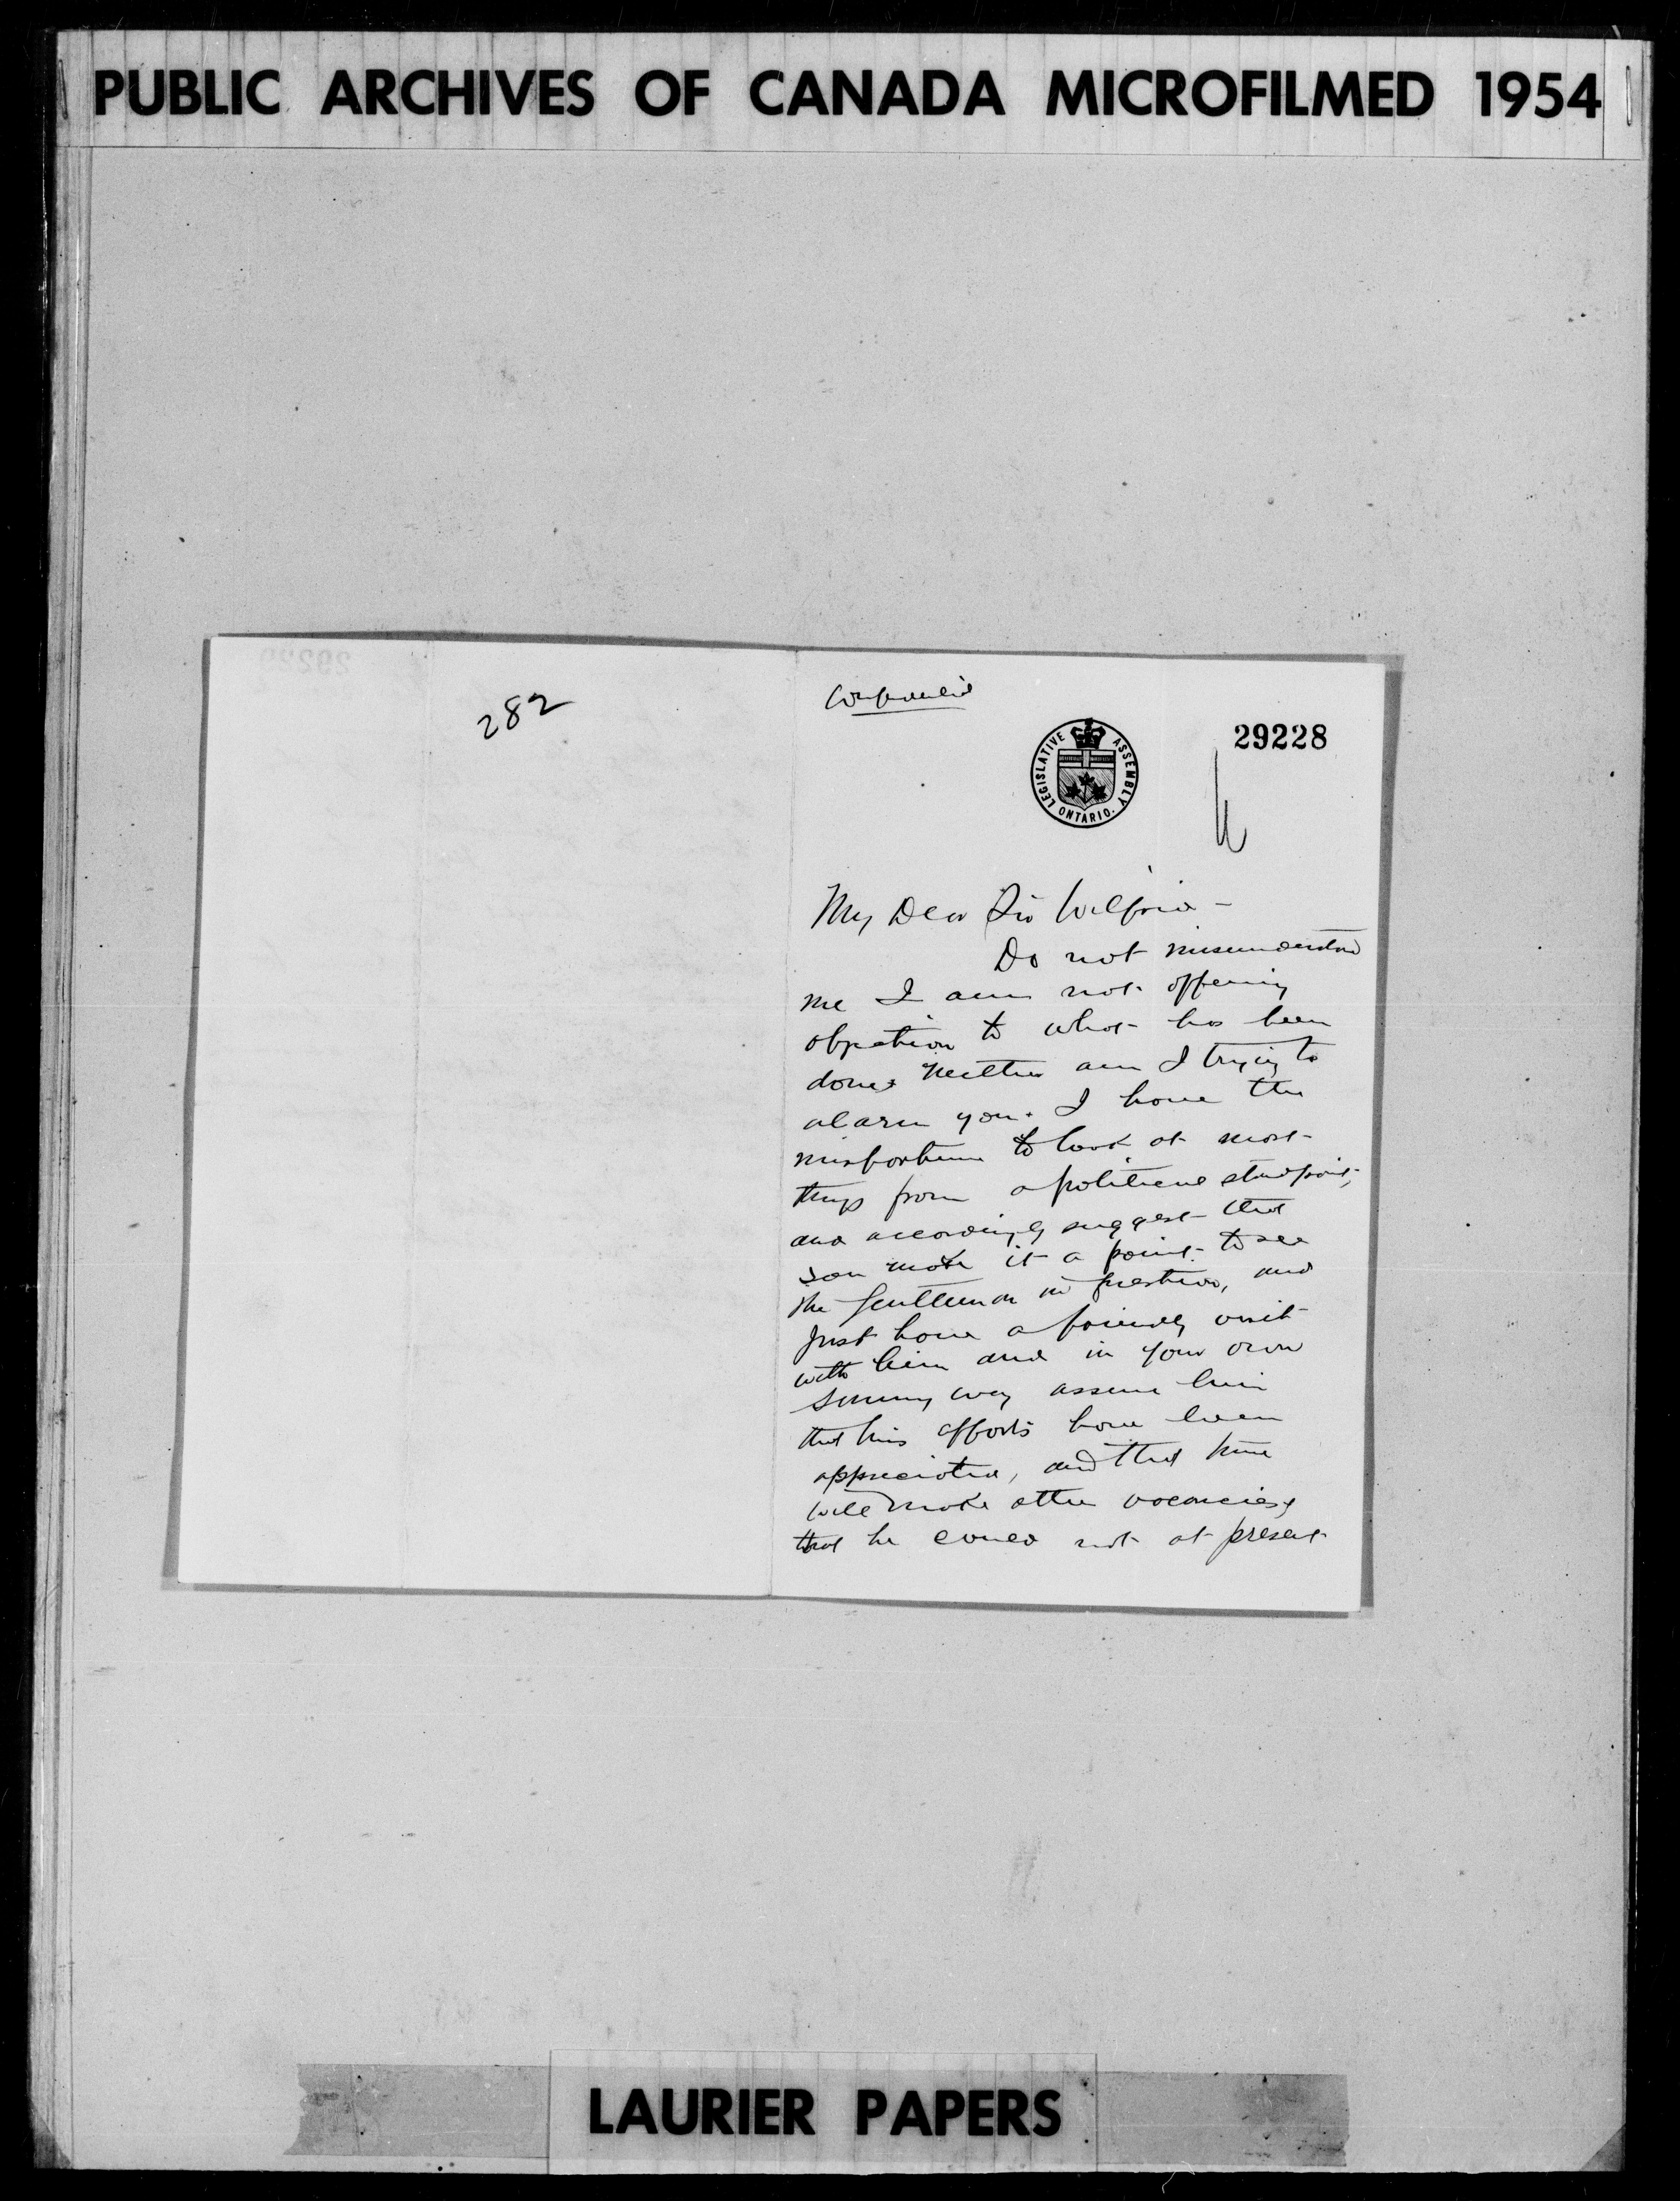 PUBLIC ARCHIVES OF CANADA MICROFILMED 1954
282
Confidential
LEGISLATIVE ASSEMBLY ONTARIO.
29228
My Dear Sir Wilfrid -
Do not misunderstand
me I am not offering
objection to what has been
done neither am I trying to
alarm you. I have the
misfortune to look at most
things from a political standpoint,
and accordingly suggest that
you make it a point to see
the gentleman in question, and
just have a friendly visit
with him and in your own
sunny way assure him
that his efforts have been
appreciated, and that time
will make other vacancies &
that he could not at present
LAURIER PAPERS